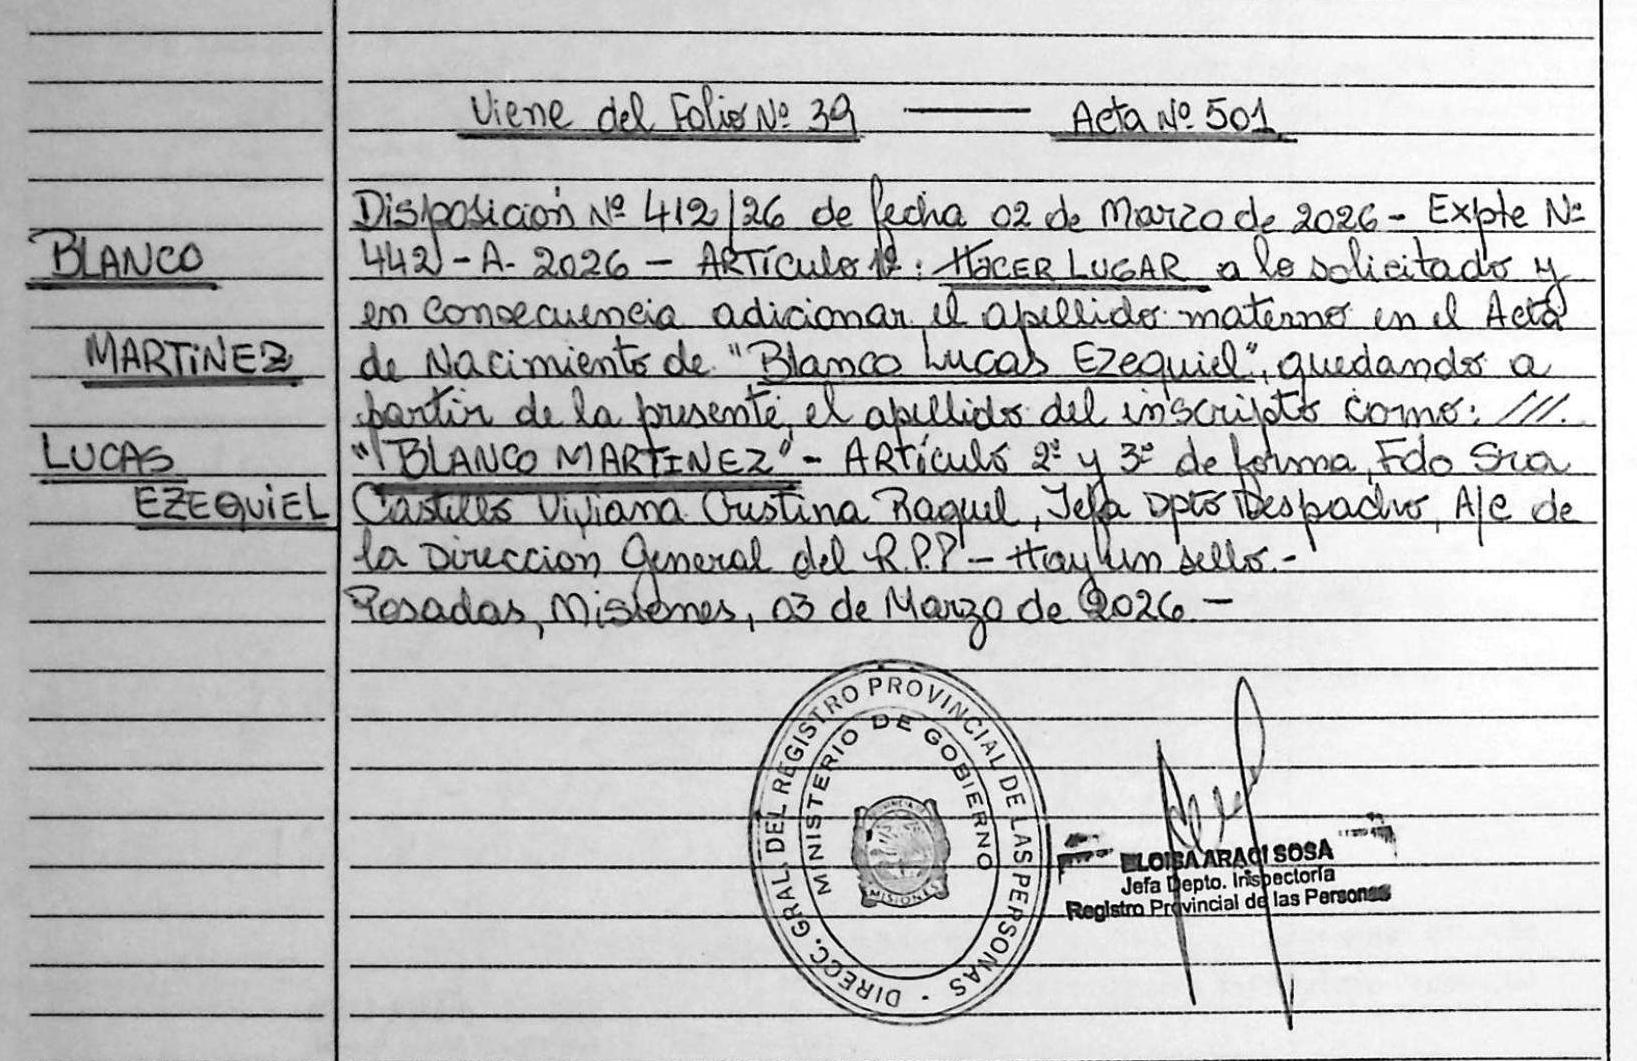 Viene del Folio Nº 39 —— Acta Nº 501
BLANCO
MARTINEZ
LUCAS
EZEQUIEL
Disposición Nº 412/26 de fecha 02 de Marzo de 2026 - Expte Nº
442 - A - 2026 - ARTÍCULO 1º: HACER LUGAR a lo solicitado y
en consecuencia adicionar el apellido materno en el Acta
de Nacimiento de "Blanco Lucas Ezequiel", quedando a
partir de la presente, el apellido del inscripto como: ///.
"BLANCO MARTINEZ" - ARtículo 2º y 3º de forma, Fdo Sra
Castillo Viviana Cristina Raquel, Jefa Dpto Despacho, A/C de
la Direccion General del R.P.P - Hay un sello.-
Posadas, Misiones, 03 de Marzo de 2026 -
DIRECC. GRAL. DEL REGISTRO PROVINCIAL DE LAS PERSONAS -
MINISTERIO DE GOBIERNO
MISIONES
ELOISA ARACI SOSA
Jefa Depto. Inspectoría
Registro Provincial de las Personas